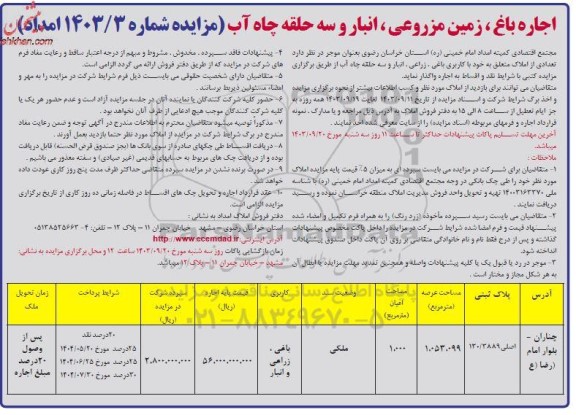 اجاره باغ ، زمین مزروعی ، انبار و سه حلقه چاه آب (مزایده شماره ۱۴۰۳/۳ امداد)
مجتمع اقتصادی کمیته امداد امام خمینی (ره) استان خراسان رضوی بعنوان موجر در نظر دارد
تعدادی از املاک متعلق به خود با کاربری باغی ، زراعی ، انبار و سه حلقه چاه آب از طریق برگزاری
مزایده کتبی با شرایط نقد و اقساط به اجاره واگذار نماید.
متقاضیان می توانند برای بازدید از املاک مورد نظر و کسب اطلاعات بیشتر از نحوه برگزاری مزایده
و اخذ برگ شرایط شرکت و اسناد مزایده از تاریخ ۱۴۰۳/۰۹/۱۱ لغایت ۱۴۰۳/۰۹/۱۹ همه روزه به
جز ایام تعطیل از ساعت ۸ الی ۱۵ به دفتر فروش املاک به آدرس ذیل مراجعه و یا مدارک ، نمونه
قرارداد اجاره و فرمهای مربوطه (اسناد مزایده) را از سایت معرفی شده اخذ نمایند .
آخرین مهلت تسلیم پاکات پیشنهادات حداکثر تا ساعت ۱۱ روز سه شنبه مورخ ۱۴۰۳/۰۹/۲۰
میباشد.
ملاحظات :
۱- متقاضیان برای شرکت در مزایده می بایست سپرده ای به میزان ۵٪ قیمت پایه مزایده املاک
مورد نظر خود را طی چک بانکی در وجه مجتمع اقتصادی کمیته امداد امام خمینی (ره) با شناسه
ملی ۱۴۰۰۳۱۶۳۳۷۰ تهیه و تحویل واحد فروش مدیریت املاک منطقه خراسان نموده و رسید
دریافت نمایند.
۲- متقاضیان می بایست رسید سپرده ماخوذه (زرد رنگ) را به همراه فرم تکمیل و امضاء شده
پیشنهاد قیمت و فرم امضا شده شرایط شرکت در مزایده را داخل پاکت مخصوص پیشنهادات
گذاشته و پس از درج فقط نام و نام خانوادگی متقاضی بر روی آن پاکت داخل صندوق پیشنهادات
انداخته شود.
۳- موجر در رد یا قبول یک یا کلیه پیشنهادات واصله و همچنین تمدید مهلت مزایده یا ابطال آن
به هر شکل مجاز و مختار است .
۴- پیشنهادات فاقد سپرده ، مخدوش ، مشروط و مبهم از درجه اعتبار ساقط و رعایت مفاد فرم
های شرکت در مزایده که از طریق دفتر فروش ارائه می گردد الزامی است.
۵- متقاضیان دارای شخصیت حقوقی می بایست ذیل فرم شرایط شرکت در مزایده را به مهر و
امضاء مسئولین ذیربط برسانند .
۶- حضور کلیه شرکت کنندگان یا نماینده آنان در جلسه مزایده آزاد است و عدم حضور هر یک یا
کلیه شرکت کنندگان موجب هیچ ادعایی از طرف آنان نخواهد بود.
۷- مذکورا توصیه میشود متقاضیان محترم به اطلاعات مندرج در آگهی توجه و ضمن رعایت مفاد
مندرج در برگ شرایط شرکت در مزایده از املاک مورد نظر حتما بازدید بعمل آورند .
۸- دریافت اقساط طی چکهای صادره از سوی بانک ها (بجز صندوق قرض الحسنه) قابل دریافت
بوده و از دریافت چک های مربوط به حسابهای قدیمی (غیر صیادی) و سفته معذور می باشیم .
۹- در صورت برنده نشدن در مزایده سپرده متقاضی حداکثر ظرف مدت پنج روز کاری عودت داده
خواهد شد.
۱۰- عقد قرارداد اجاره و تحویل چک های اقساط در فاصله زمانی ده روز کاری از تاریخ برگزاری
مزایده الزامی است.
دفتر فروش املاک امداد به نشانی :
استان خراسان رضوی – مشهد – خیابان چمران ۱۱ – پلاک ۱۲ – تلفن: ۰۴-۰۵۱۳۸۵۴۵۶۶۳
آدرس اینترنتی http://www.ccemdad.ir
زمان بازگشائی پاکات روز سه شنبه مورخ ۱۴۰۳/۰۹/۲۰ ساعت ۱۲ و محل برگزاری مزایده به نشانی:
مشهد – خیابان چمران ۱۱ – پلاک ۱۲ میباشد
آدرس
پلاک ثبتی
مساحت عرصه (مترمربع)
مساحت اعیان (مترمربع)
وضعیت سند
کاربری
قیمت پایه اجاره (ریال)
سپرده شرکت در مزایده (ریال)
شرایط پرداخت
زمان تحویل ملک
چناران – بلوار امام رضا (ع
۱۳۰/۳۸۸۹ اصلی
۱.۰۵۳.۰۹۹
۱.۰۰۰
ملکی
باغی ، زراعی و انبار
۵۶.۰۰۰.۰۰۰.۰۰۰
۲.۸۰۰.۰۰۰.۰۰۰
۲۰درصد نقد
۲۵درصد مورخ ۱۴۰۴/۰۵/۲۰
۲۵درصد مورخ ۱۴۰۴/۰۶/۲۵
۳۰درصد مورخ ۱۴۰۴/۰۷/۳۰
پس از وصول ۲۰درصد مبلغ اجاره
۰۲۱-۸۸۳۴۹۶۷۰-۵